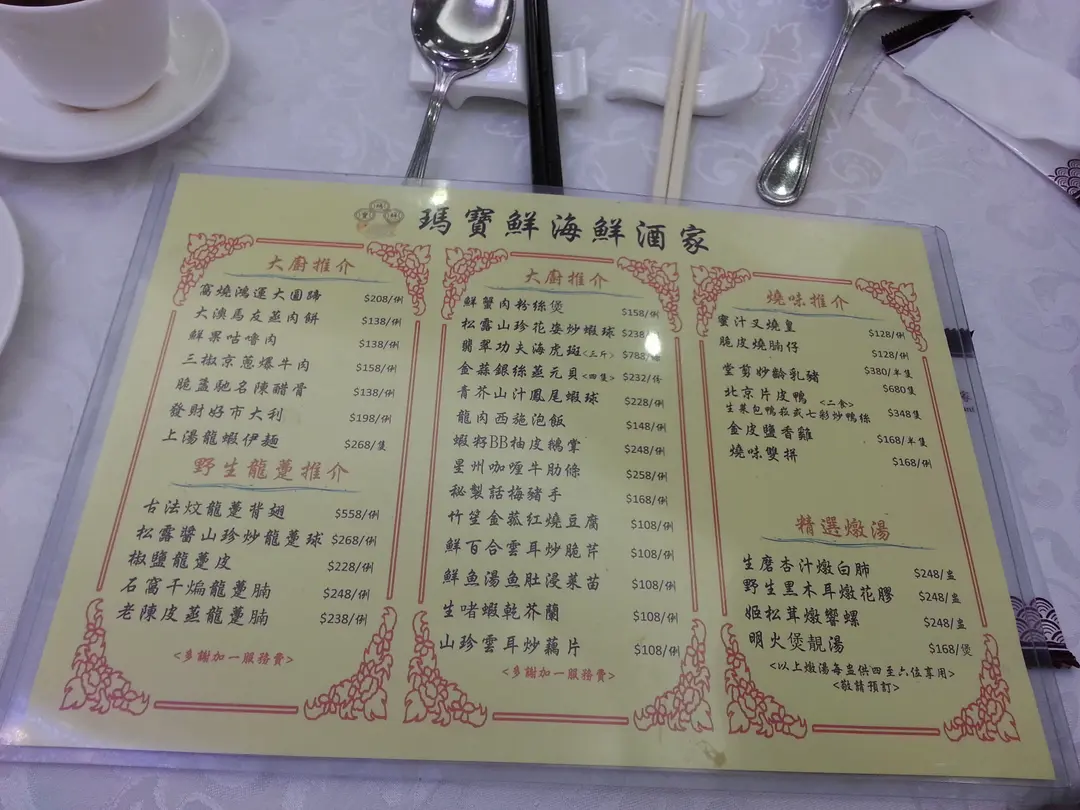 瑪寶鮮海鮮酒家
大廚推介
窩燒鴻運大圓蹄 $208/例
大澳馬友蒸肉餅 $138/例
鮮果咕嚕肉 $138/例
三椒京蔥爆牛肉 $158/例
脆蓋馳名陳醋骨 $138/例
發財好市大利 $198/例
上湯龍蝦伊麵 $268/隻
野生龍躉推介
古法炆龍躉背翅 $558/例
松露醬山珍炒龍躉球 $268/例
椒鹽龍躉皮 $228/例
石窩干煸龍躉腩 $248/例
老陳皮蒸龍躉腩 $238/例
<多謝加一服務費>
大廚推介
鮮蟹肉粉絲煲 $158/例
松露山珍花姿炒蝦球 $238
翡翠功夫海虎斑<三斤> $788
金蒜銀絲蒸元貝<四隻> $232/份
青芥山汁鳳尾蝦球 $228/例
龍肉西施泡飯 $148/例
蝦籽BB柚皮鵝掌 $248/例
星州咖喱牛肋條 $258/例
秘製話梅豬手 $168/例
竹笙金菰紅燒豆腐 $108/例
鮮百合雲耳炒脆芹 $108/例
鮮魚湯魚肚浸菜苗 $108/例
生啫蝦乾芥蘭 $108/例
山珍雲耳炒藕片 $108/例
<多謝加一服務費>
燒味推介
蜜汁叉燒皇 $128/例
脆皮燒腩仔 $128/例
堂剪妙齡乳豬 $380/半隻
$680隻
北京片皮鴨 <二食> $348隻
生菜包鴨崧或七彩炒鴨絲
金皮鹽香雞 $168/半隻
燒味雙拼 $168/例
精選燉湯
生磨杏汁燉白肺 $248/盅
野生黑木耳燉花膠 $248/盅
姬松茸燉響螺 $248/盅
明火煲靚湯 $168/煲
<以上燉湯每盅供四至六位享用>
<敬請預訂>